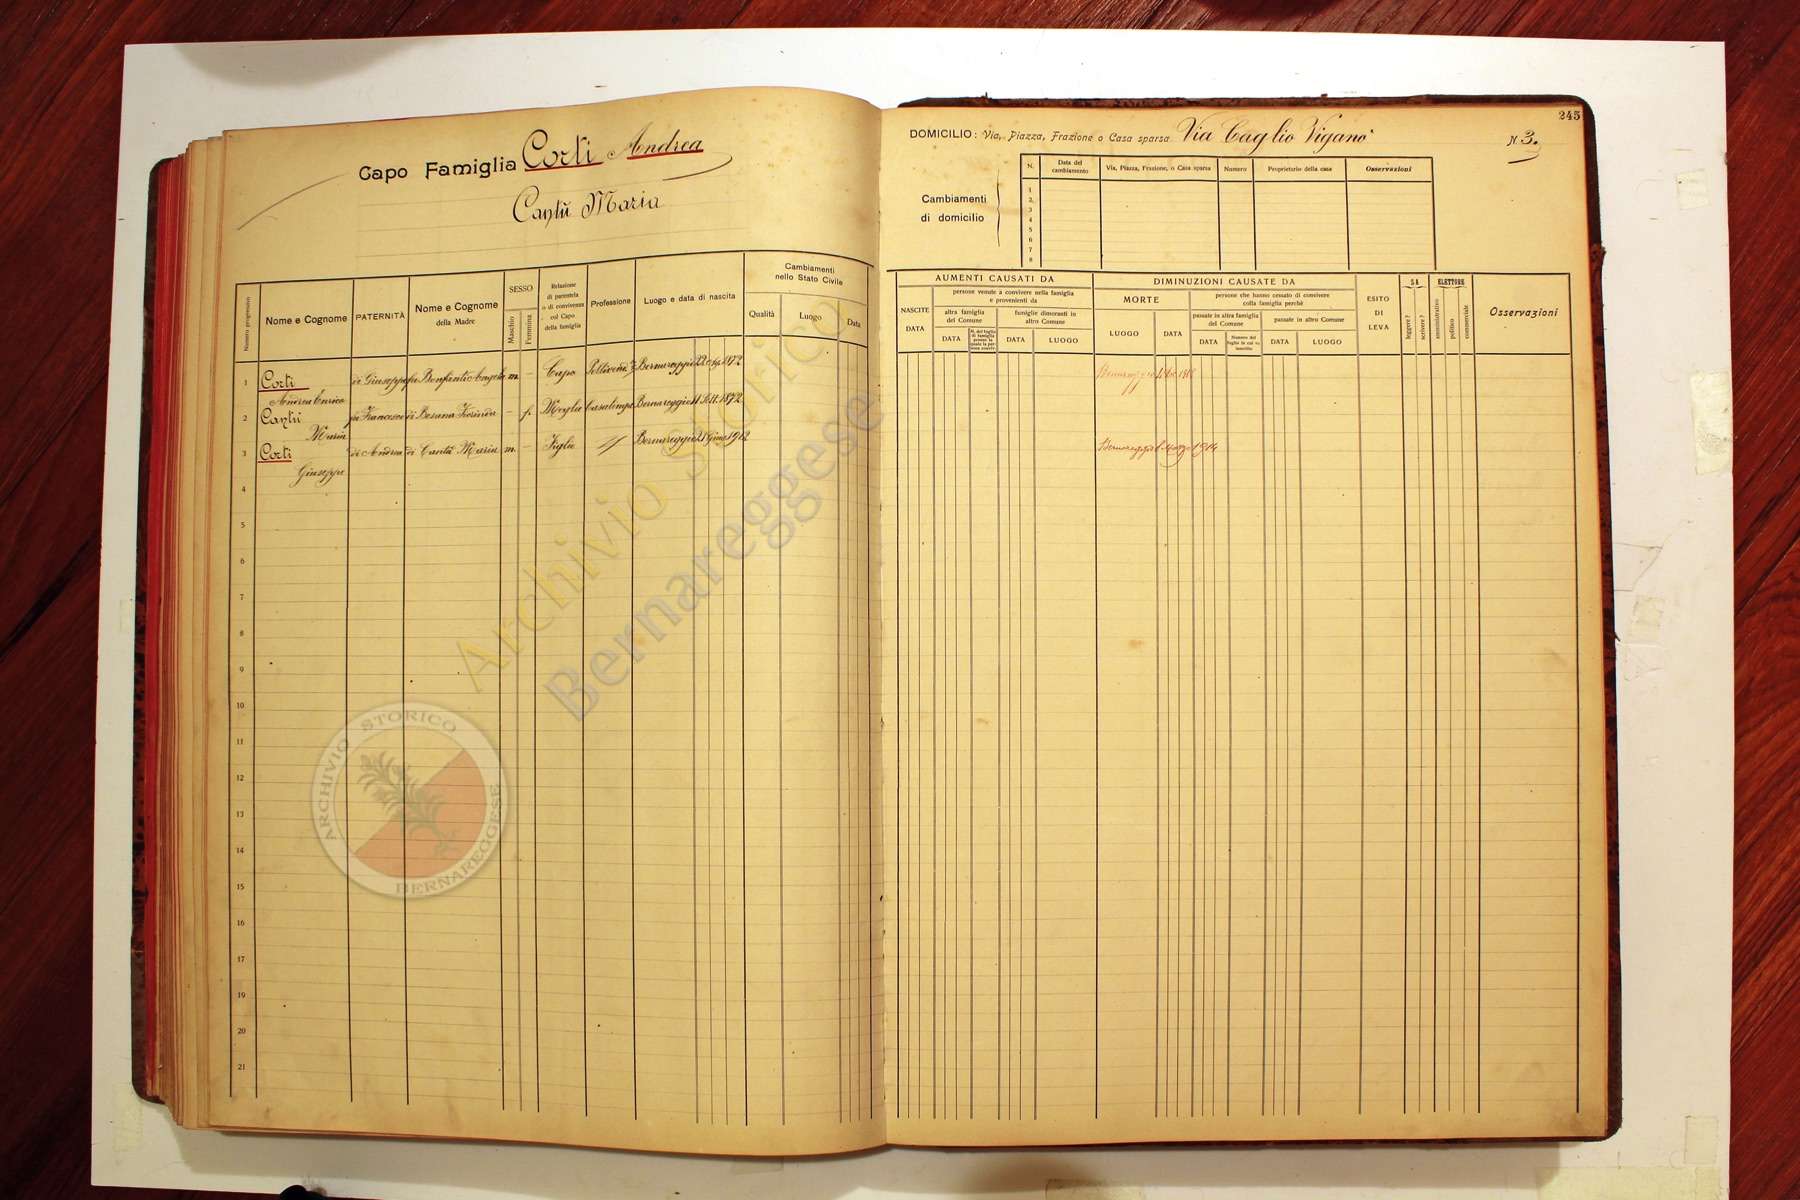 Capo Famiglia Corti Andrea
Cantù Maria
245
DOMICILIO: Via, Piazza, Frazione o Casa sparsa Via Caglio Viganò N. 3.
Cambiamenti di domicilio
N. Data del cambiamento Via, Piazza, Frazione, o Casa sparsa Numero Proprietario della casa Osservazioni
1
2
3
4
5
6
7
8
Numero progressivo
Nome e Cognome
PATERNITÀ
Nome e Cognome della Madre
SESSO
Maschio
Femmina
Relazione di parentela o di convivenza col Capo della famiglia
Professione
Luogo e data di nascita
Cambiamenti nello Stato Civile
Qualità
Luogo
Data
AUMENTI CAUSATI DA
NASCITE
DATA
persone venute à convivere nella famiglia e provenienti da
altra famiglia del Comune
DATA
famiglie dimoranti in altro Comune
DATA
LUOGO
DIMINUZIONI CAUSATE DA
MORTE
LUOGO
DATA
persone che hanno cessato di convivere colla famiglia perchè
passate in altra famiglia del Comune
DATA
passate in altro Comune
DATA
LUOGO
ESITO DI LEVA
SA
leggere?
scrivere?
ELETTORE
amministrativo
politico
commerciale
Osservazioni
1 Corti di Giuseppe fu Bonfanti Angela m. – Capo Bernareggio 1872 Bernareggio
Andrea Enrico
2 Cantù fu Francesco di Besana – f. Moglie Casalinga Bernareggio 11 Sett. 1872
Maria
3 Corti di Andrea di Cantù Maria m. – Figlio // Bernareggio 21 Giug. 1912 Bernareggio Marzo 1914
Giuseppe
4
5
6
7
8
9
10
11
12
13
14
15
16
17
18
19
20
21
Archivio Storico
Bernareggese
ARCHIVIO STORICO
BERNAREGGESE